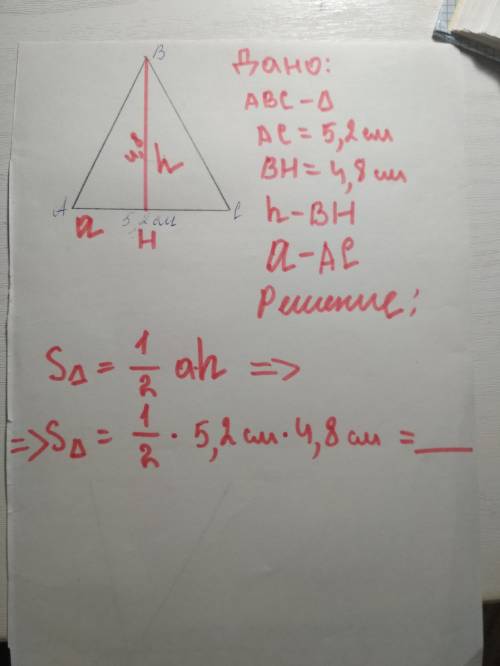 B
4,8
h
A
5,2 см
C
a
H
Дано:
ABC - Δ
AC = 5,2 см
BH = 4,8 см
h - BH
a - AC
Решение:
SΔ = 1/2 ah =>
=> SΔ = 1/2 · 5,2 см · 4,8 см = ___